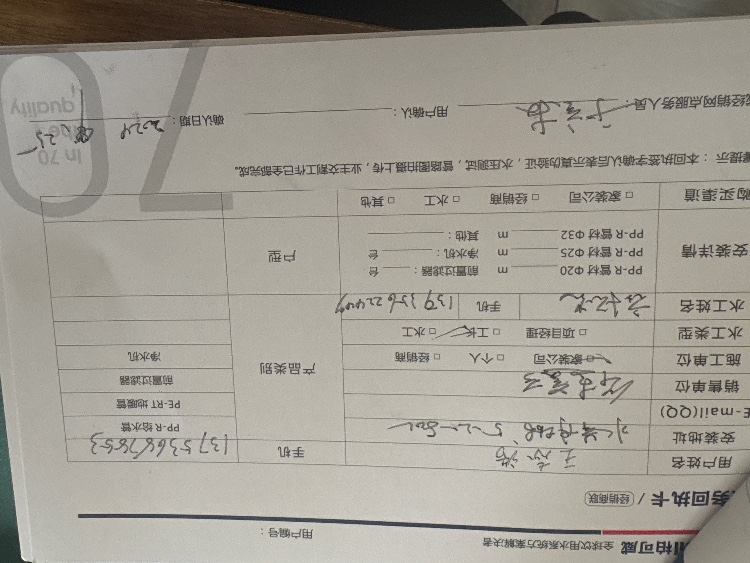 柏可威 全球饮用水系统方案解决者
用户编号：
务回执卡 / 经销商联
用户姓名 手机 13753687853
安装地址 5-2-502
E-mail(QQ)
销售单位
施工单位 家装公司 个人 经销商
水工类型 项目经理 工长 水工
水工姓名 手机
产品类别
PP-R 给水管
PE-RT 地暖管
前置过滤器
净水机
安装详情 PP-R 管材 Φ20 m 前置过滤器： 台
PP-R 管材 Φ25 m 净水机： 台
PP-R 管材 Φ32 m 其他：
户型
购买渠道 家装公司 经销商 水工 其他
提示：本回执签字确认后表示真伪验证，水压测试，管路图拍摄上传，业主交割工作已全部完成。
经销网点服务人员： 用户确认： 确认日期： 2024
In 70
quality
70